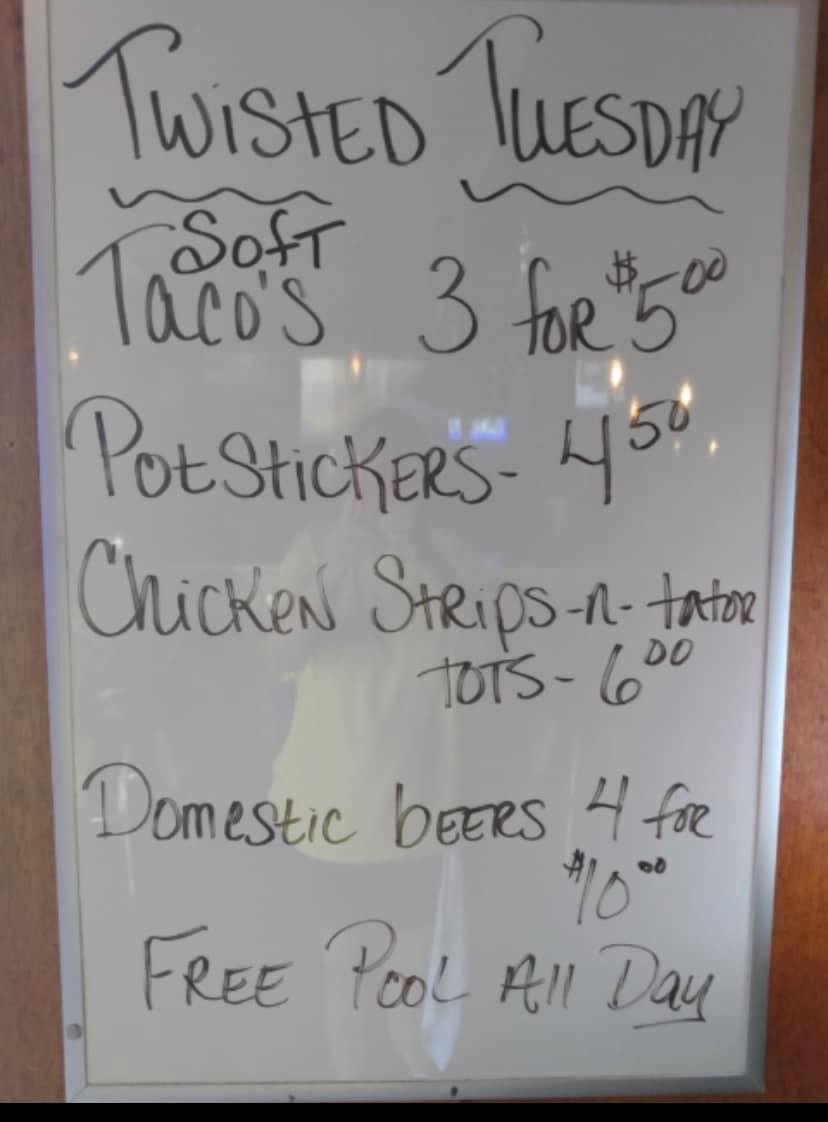 TWiStED TUESDAY
SofT
Taco's 3 foR $5.00
PotStickERS- 4 50
ChickeN StRips-n-tatoR
TOTS- 6 00
Domestic bEERS 4 foR
$10.00
FREE PooL All Day